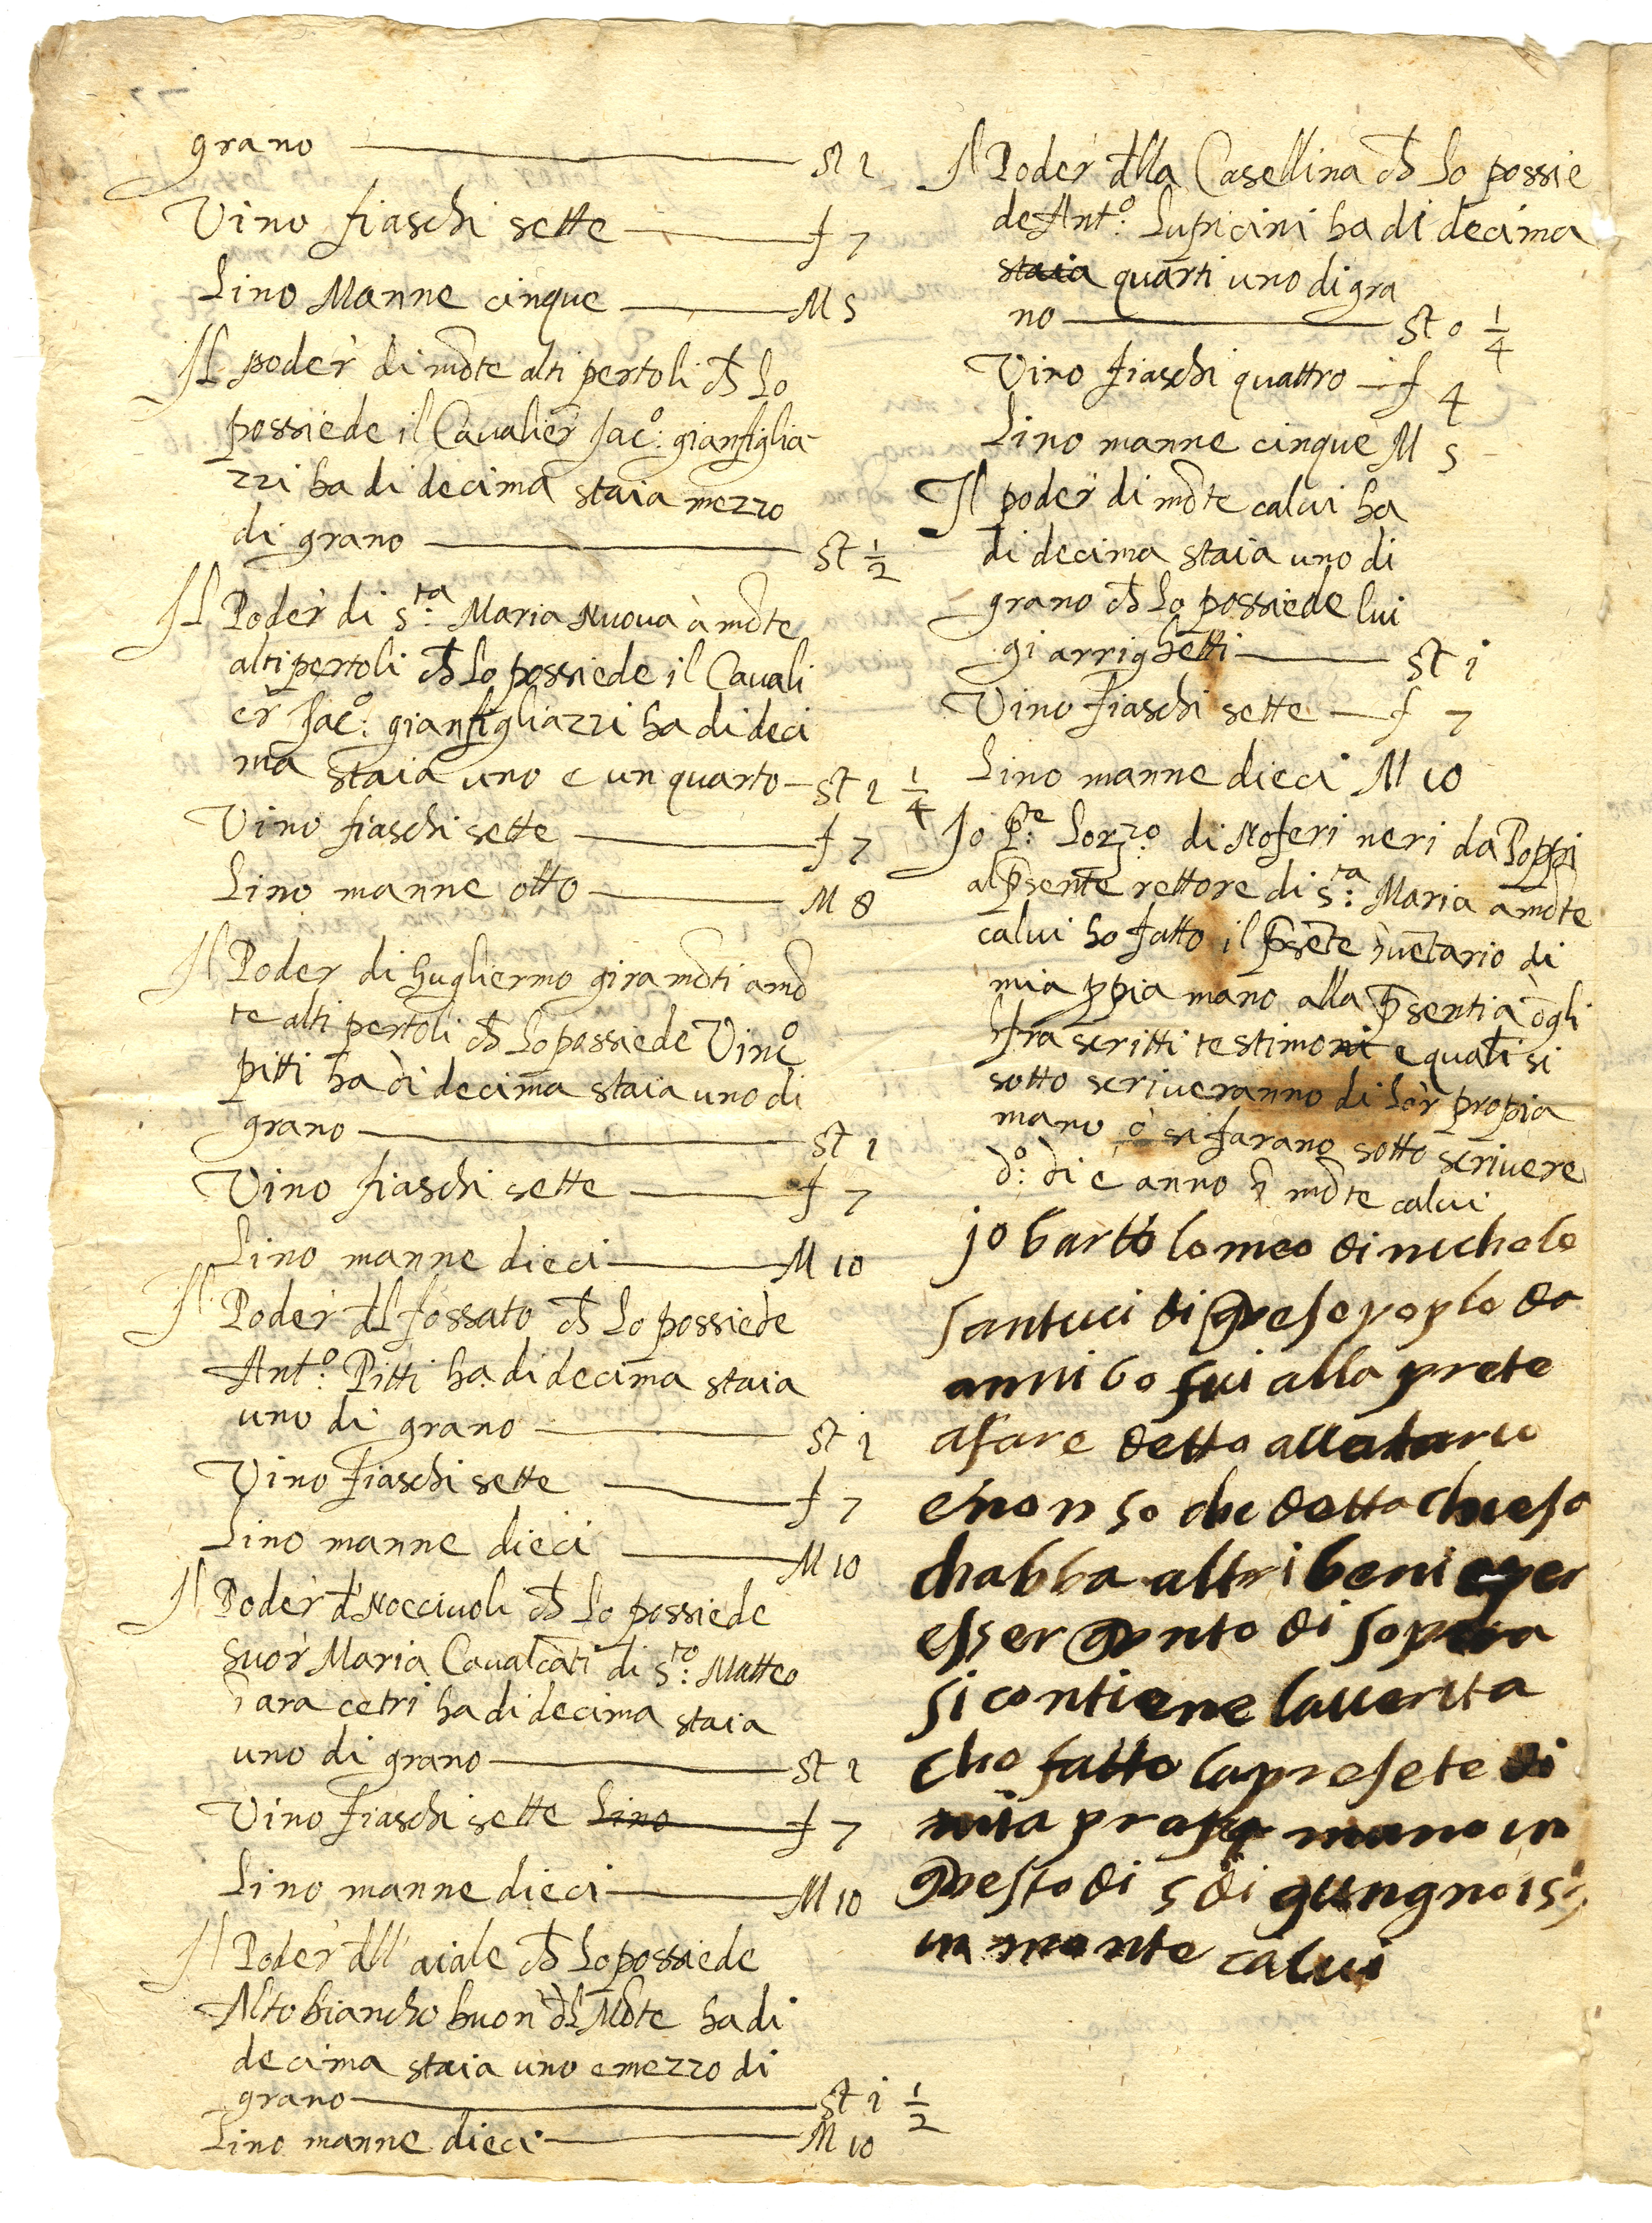 grano st 1
Vino fiaschi sette f 7
Lino Manne cinque M 5
Il poder di mõte alti pertoli ch̃ lo
possiede il Cavalier Jac.º gianfiglia
zzi ha di decima staia mezzo
di grano st 1/2
Il Poder di S.ta Maria Nuova à mõte
alti pertoli ch̃ lo possiede il Cavali
er Jac.º gianfigliazzi ha di deci
ma staia uno e un quarto st 1 1/4
Vino fiaschi sette f 7
Lino manne otto M 8
Il Poder di hugliermo gira mõti a mõ
te alti pertoli ch̃ lo possiede Vinc.º
pitti ha di decima staia uno di
grano st 1
Vino fiaschi sette f 7
Lino manne dieci M 10
Il Poder d̃l fossato ch̃ lo possiede
Ant.º Pitti ha di decima staia
uno di grano st 1
Vino fiaschi sette f 7
Lino manne dieci M 10
Il Poder d' Nocciuoli ch̃ lo possiede
suor Maria Cavalcãti di S.to Matteo
ĩ arcetri ha di decima staia
uno di grano st 1
Vino fiaschi sette Lino f 7
Lino manne dieci M 10
Il Poder d̃ll' aiale ch̃ lo possiede
Altobiancho buon d̃l Mõte ha di
decima staia uno e mezzo di
grano st i 1/2
Lino manne dieci M 10
Il Poder d̃lla Casellina ch̃ lo possie
de Ant.º Lupicini ha di decima
staia quarti uno di gra
no st 0 1/4
Vino fiaschi quattro f 4
Lino manne cinque M 5
Il poder di mõte calvi ha
di decima staia uno di
grano ch̃ lo possiede lui
gi arrighetti st i
Vino fiaschi sette f 7
Lino manne dieci M 10
Io P.e Lorzo di Noferi neri da Poppi
al p̃sente rettore di S.ta Maria a mõte
calvi ho fatto il p̃sẽte ĩvẽtario di
mia ppia mano alla p̃sentia d̃gli
ĩfra scritti testimoni e quali si
sotto scriveranno di lor propia
mano ò si farano sotto scrivere
d.º di e anno ĩ mõte calvi
jo bartolomeo di nichelo
santuci di queso poplo da
anni 60 fui alla prete
afare detto
e non so che detta chiesa
chabba altri beni e per
esser quanto di sopra
si contiene la verita
cho fatto la presete di
mia propa mano in
questo di 5 di gungno
in monte calvi